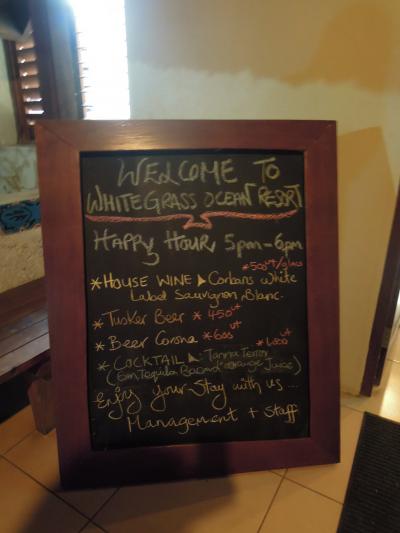 WELCOME TO
WHITEGRASS OCEAN RESORT
HAPPY HOUR 5pm-6pm
* 500vt/glass
* HOUSE WINE Corbans White
Label Sauvignon Blanc.
* Tusker Beer * 450vt
* Beer Corona * 600vt
* COCKTAIL Tanna Terror * 1,000vt
(Gin, Tequila, Bacardi, orange Juice)
Enjoy your Stay with us...
Management + Staff